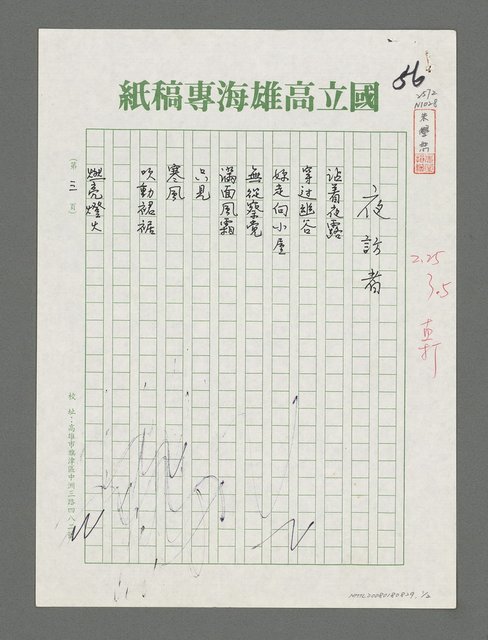 國立高雄海專稿紙
56
2512
N1028
朱學恕
夜訪者
沾着夜露
穿过幽谷
妳走向小屋
無從察覺
滿面風霜
只見
寒風
吹動裙裾
燃亮燈火
2.25
3.5
直打
(第 三 頁)
校 址:高雄市旗津區中洲三路四八二號
NMTL20080180829. 1/2